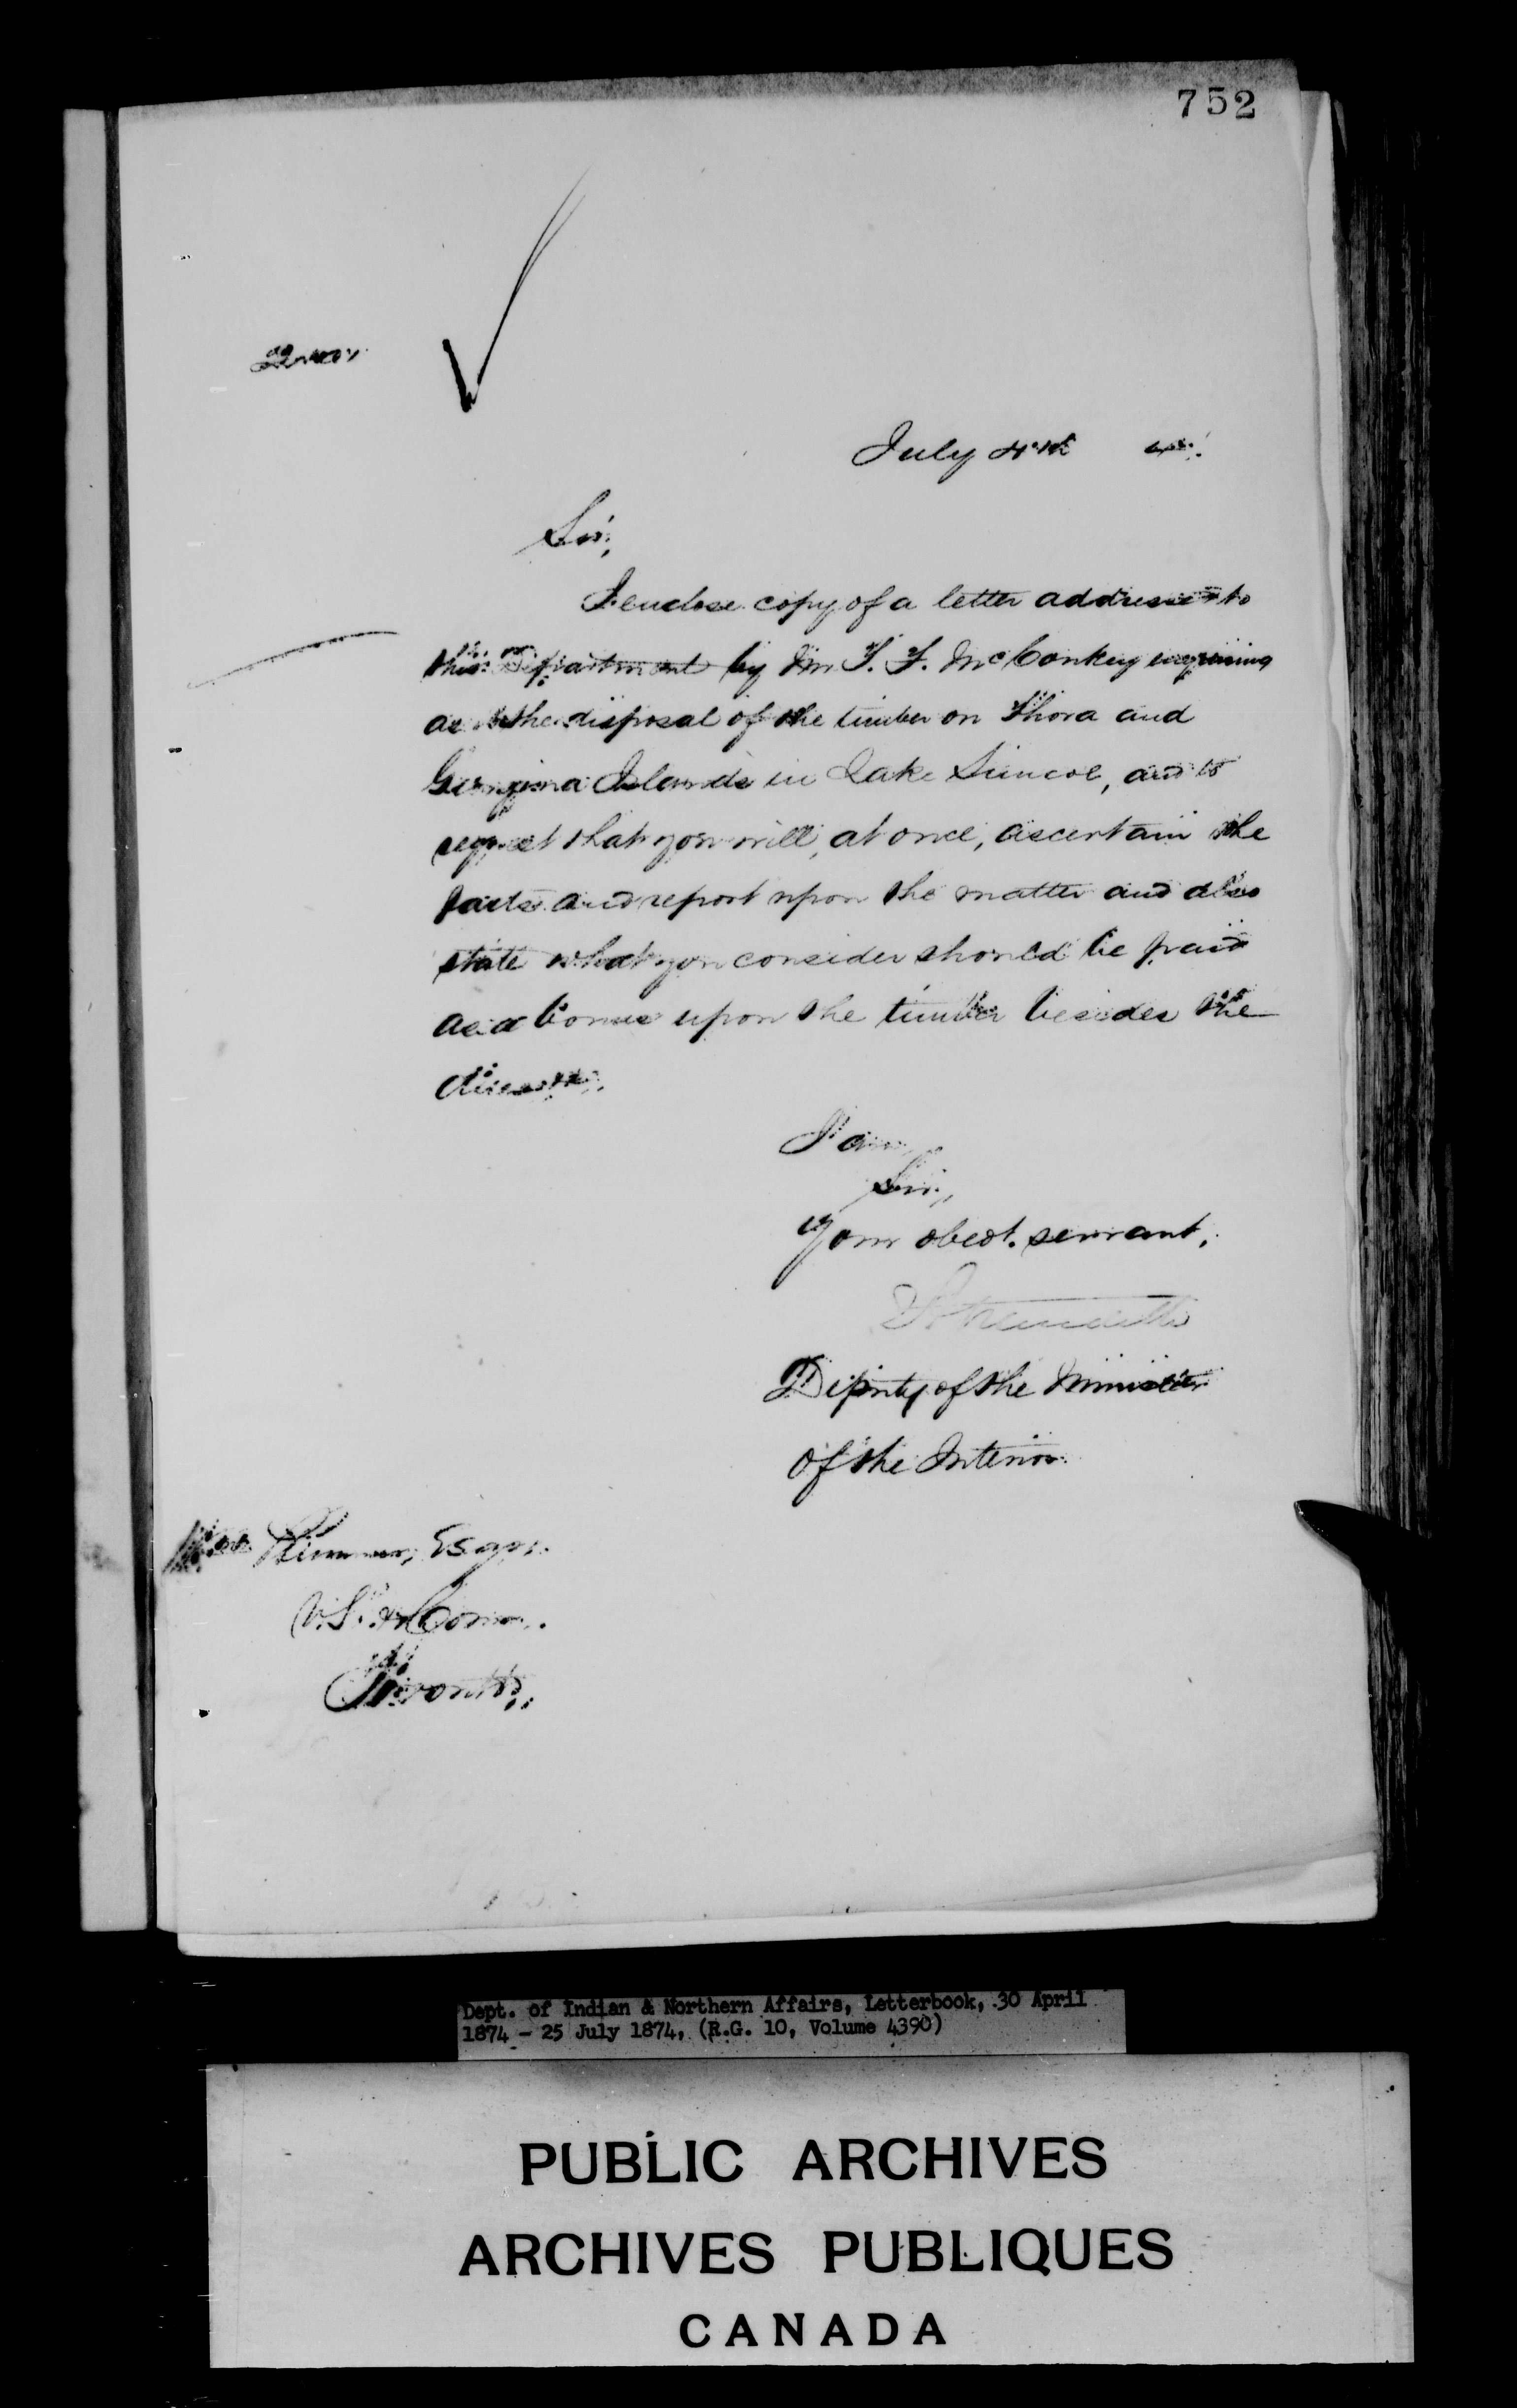 752
July 4th
Sir,
I enclose copy of a letter addressed to
this Department by Mr. T. F. McConkey enquiring
as to the disposal of the timber on Thora and
Georgina Islands in Lake Simcoe, and to
request that you will, at once, ascertain the
facts and report upon the matter and also
state what you consider should be paid
as a bonus upon the timber besides the
I am,
Sir,
Your obedt. servant,
Deputy of the Minister
of the Interior.
Plummer, Esqr.
Toronto,
Dept. of Indian & Northern Affairs, Letterbook, 30 April
1874 - 25 July 1874, (R.G. 10, Volume 4390)
PUBLIC ARCHIVES
ARCHIVES PUBLIQUES
CANADA